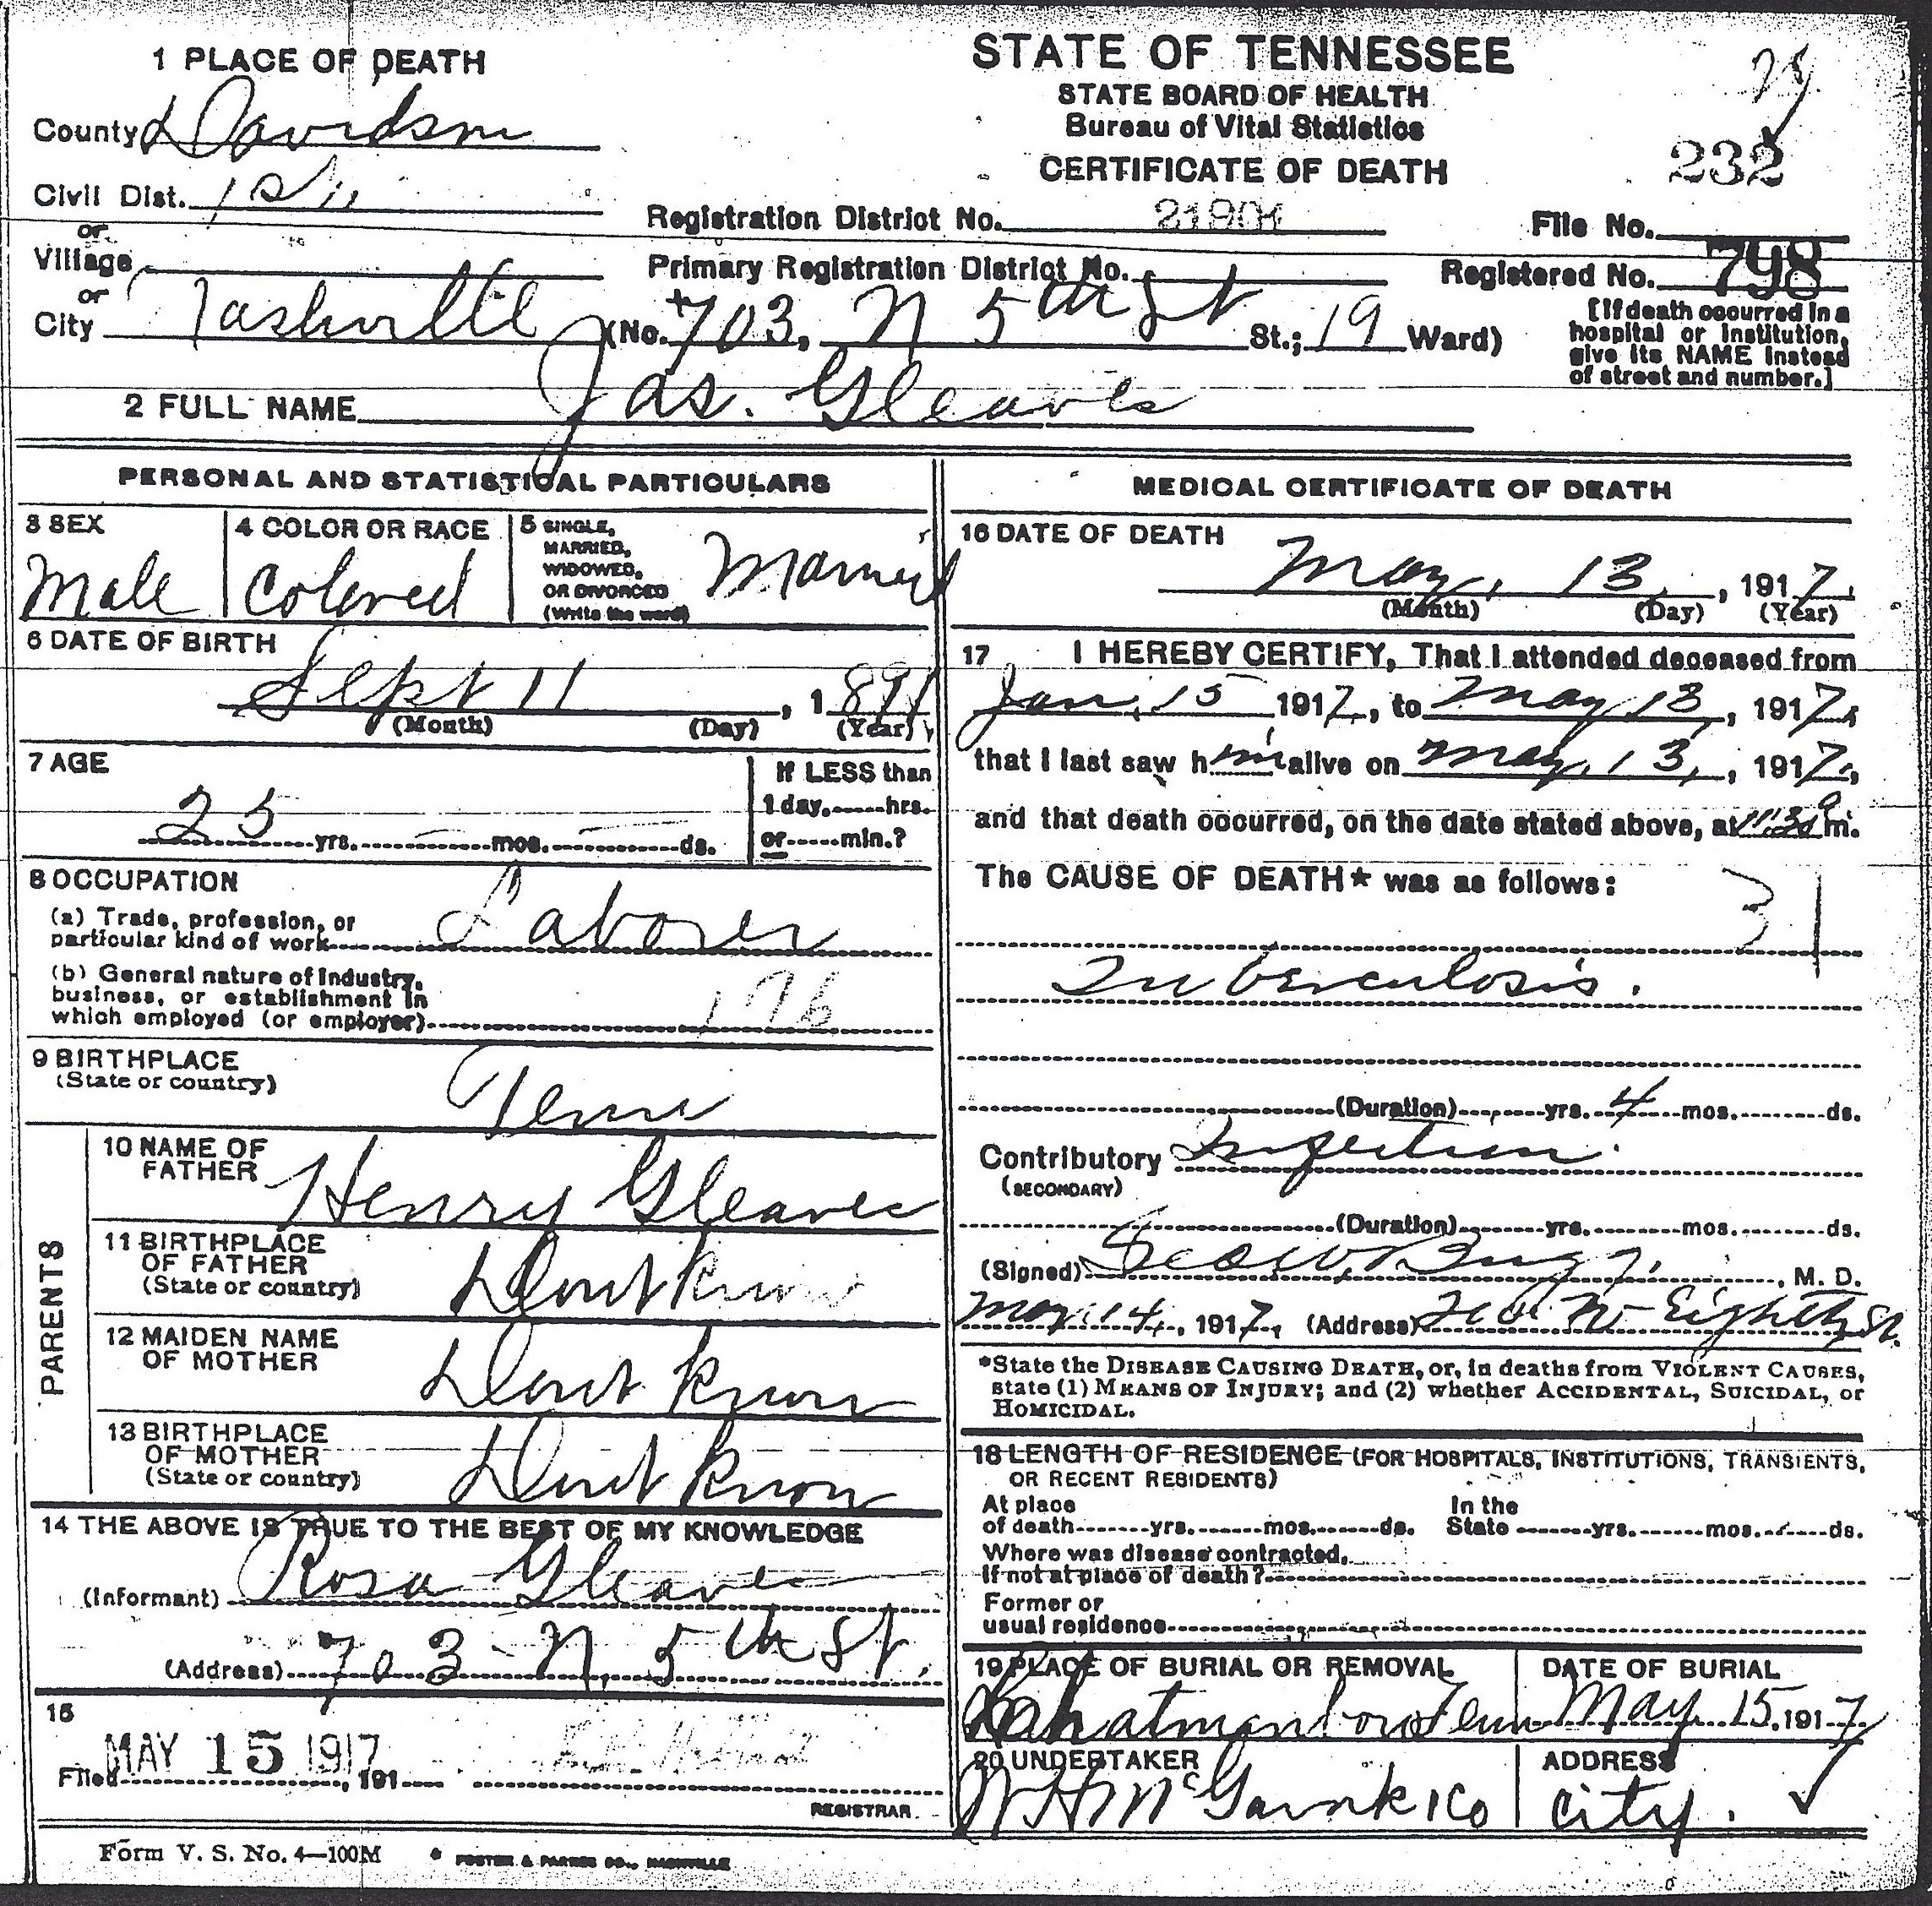 1 PLACE OF DEATH
County Davidson
Civil Dist.
or
Village
or
City Nashville
STATE OF TENNESSEE
STATE BOARD OF HEALTH
Bureau of Vital Statistics
CERTIFICATE OF DEATH
232
Registration District No. 21901
File No.
Primary Registration District No.
Registered No. 798
(No. 703, N 5th St St.; 19 Ward)
[If death occurred in a
hospital or institution,
give its NAME instead
of street and number.]
2 FULL NAME Jas. Gleaves
PERSONAL AND STATISTICAL PARTICULARS
3 SEX
Male
4 COLOR OR RACE
Colored
5 SINGLE,
MARRIED,
WIDOWED,
OR DIVORCED
(Write the word)
Married
6 DATE OF BIRTH
Sept 11, 1891
(Month) (Day) (Year)
7 AGE
25 yrs. mos. ds.
If LESS than
1 day, hrs.
or min.?
8 OCCUPATION
(a) Trade, profession, or
particular kind of work Laborer
(b) General nature of Industry,
business, or establishment in
which employed (or employer) 176
9 BIRTHPLACE
(State or country)
Tenn
PARENTS
10 NAME OF
FATHER
Henry Gleaves
11 BIRTHPLACE
OF FATHER
(State or country)
Dont know
12 MAIDEN NAME
OF MOTHER
Dont know
13 BIRTHPLACE
OF MOTHER
(State or country)
Dont know
14 THE ABOVE IS TRUE TO THE BEST OF MY KNOWLEDGE
(Informant) Rosa Gleaves
(Address) 703 - N. 5th St.
15
Filed MAY 15 1917, 191
REGISTRAR
Form V. S. No. 4—100M
FOSTER & PARKES CO., NASHVILLE
MEDICAL CERTIFICATE OF DEATH
16 DATE OF DEATH
May, 13, 1917.
(Month) (Day) (Year)
17 I HEREBY CERTIFY, That I attended deceased from
Jan. 15 1917, to May 13, 1917,
that I last saw him alive on May. 13, 1917,
and that death occurred, on the date stated above, at 11:30 a m.
The CAUSE OF DEATH* was as follows:
31
Tuberculosis.
(Duration) yrs. 4 mos. ds.
Contributory Infection.
(SECONDARY)
(Duration) yrs. mos. ds.
(Signed) Geo W. , M. D.
May. 14, 1917, (Address) N Eighth St.
*State the DISEASE CAUSING DEATH, or, in deaths from VIOLENT CAUSES,
state (1) MEANS OF INJURY; and (2) whether ACCIDENTAL, SUICIDAL, or
HOMICIDAL.
18 LENGTH OF RESIDENCE (FOR HOSPITALS, INSTITUTIONS, TRANSIENTS,
OR RECENT RESIDENTS)
At place
of death yrs. mos. ds.
In the
State yrs. mos. ds.
Where was disease contracted,
If not at place of death?
Former or
usual residence
19 PLACE OF BURIAL OR REMOVAL
Tenn
DATE OF BURIAL
May. 15, 1917
20 UNDERTAKER
ADDRESS
City.